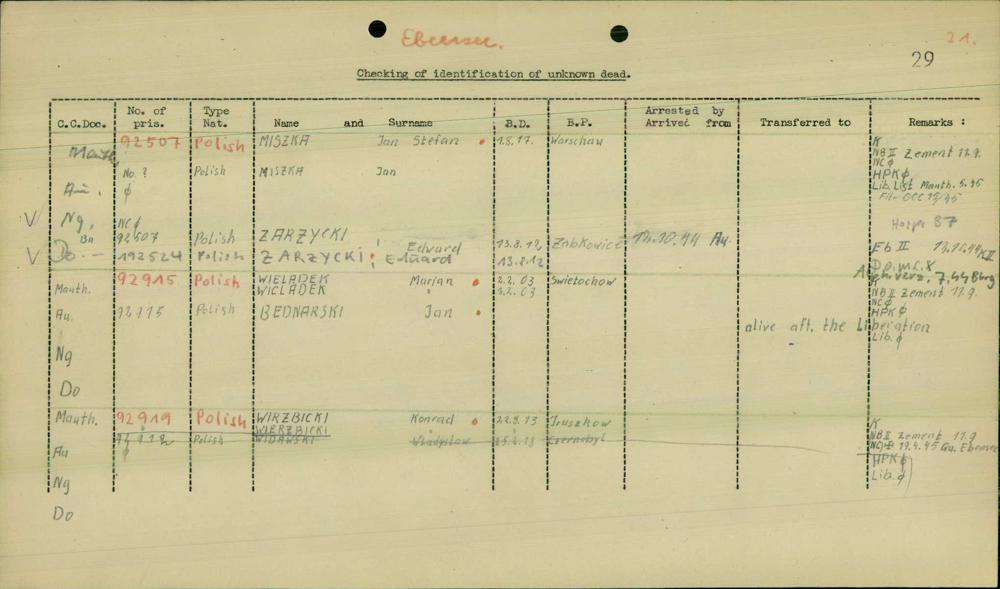 Ebensee. 21.
29
Checking of identification of unknown dead.
C.C.Doc. No. of pris. Type Nat. Name and Surname B.D. B.P. Arrested by Arrived from Transferred to Remarks :
Mauth. 92507 Polish MISZKA Jan Stefan 1.8.17. Warschau K
NBII Zement 17.9.
NC ϕ
No. ? Polish MISZKA Jan HPK ϕ
Au. ϕ Lib. List Mauth. 5.45
File OCC 15/45
V Ng. NC ϕ 87
Bn 92507 Polish ZARZYCKI Edward 13.8.12 Zabkowice 14.10.44 Au. Eb II
V Do. - 192524 Polish ZARZYCKI Eduard 13.8.12
Mauth. 92915 Polish WIELADEK Marjan 2.2.03 Swietochow K
WICLADEK " 2.2.03 NBII Zement 17.9.
NC ϕ
Au. 92915 Polish BEDNARSKI Jan HPK ϕ
alive aft. the Liberation
Lib. ϕ
Ng
Do
Mauth. 92919 Polish WIRZBICKI Konrad 22.8.13 Pruszkow K
WIERZBICKI
Polish WIDAWSKI Wladyslaw Czernobyl NBII Zement 17.9
Au ϕ 19.4.45 Gu. Ebensee
HPK ϕ
Ng Lib. ϕ
Do